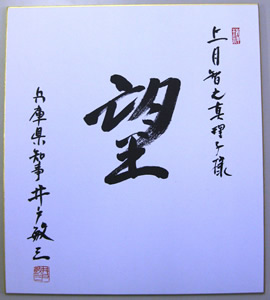 上月智之真理子様
望
兵庫県知事 井戸敏三